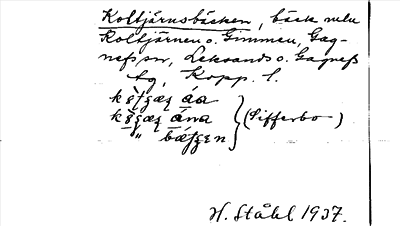 Koltjärnsbäcken, bäck mln
Koltjärnen o. Gimmen, Gag-
nefs sn, Leksands o. Gagnefs
tg, Kopp. l.
åa
åna (Sifferbo)
"
H. Ståhl 1937.